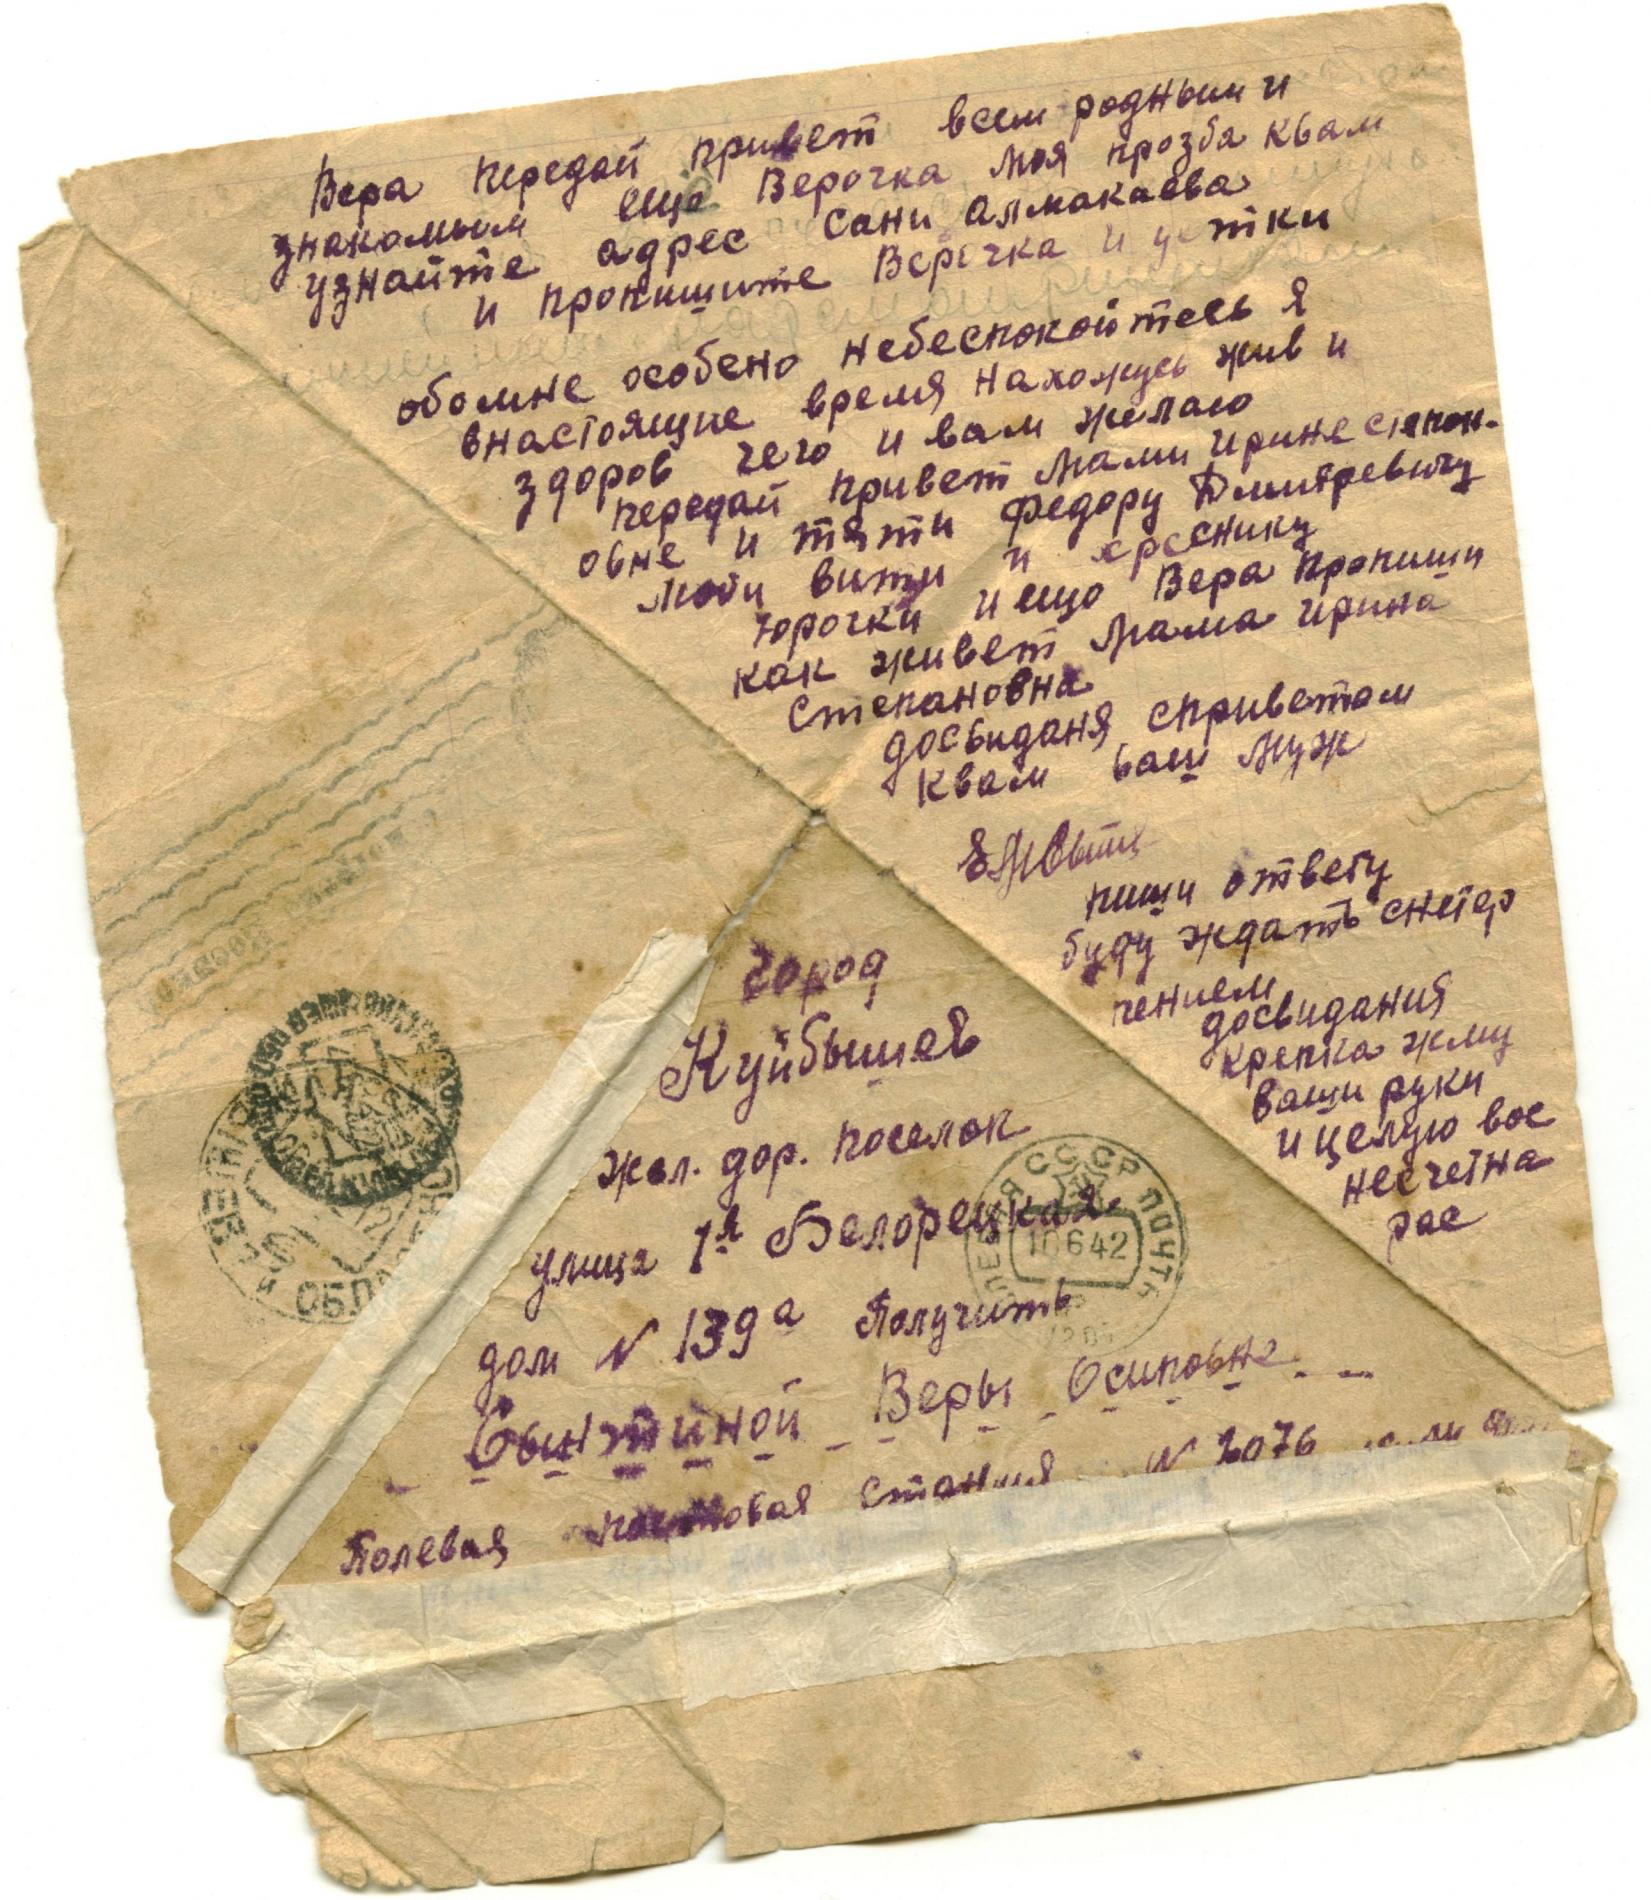 Вера передай привет всем родным и
знакомым еще Верочка моя прозба квам
узнайте адрес Сани Алмакаева
и пропишите Верочка и детки
обомне особено небеспокойтесь я
внастоящие время нахожусь жив и
здоров чего и вам желаю
передай привет Мами Ирине степон-
овне и тяти Федору Дмитревичу
Любы вити и хреснику
Юрочки и ещо Вера пропиши
как живет Мама Ирина
Степановна
досвиданя сприветом
квам ваш Муж
пиши ответу
буду ждать снетер
чением
досвидания
крепка жму
ваши руки
и целую вас
несчетна
рас
город
Куйбышев
жел. дор. поселок
улица 1я Белорецкая
дом N 139а Получить
Веры Осиповне
Полевая почтовая станция N 1076
СССР ПОЧТА
10642
ОБЛ